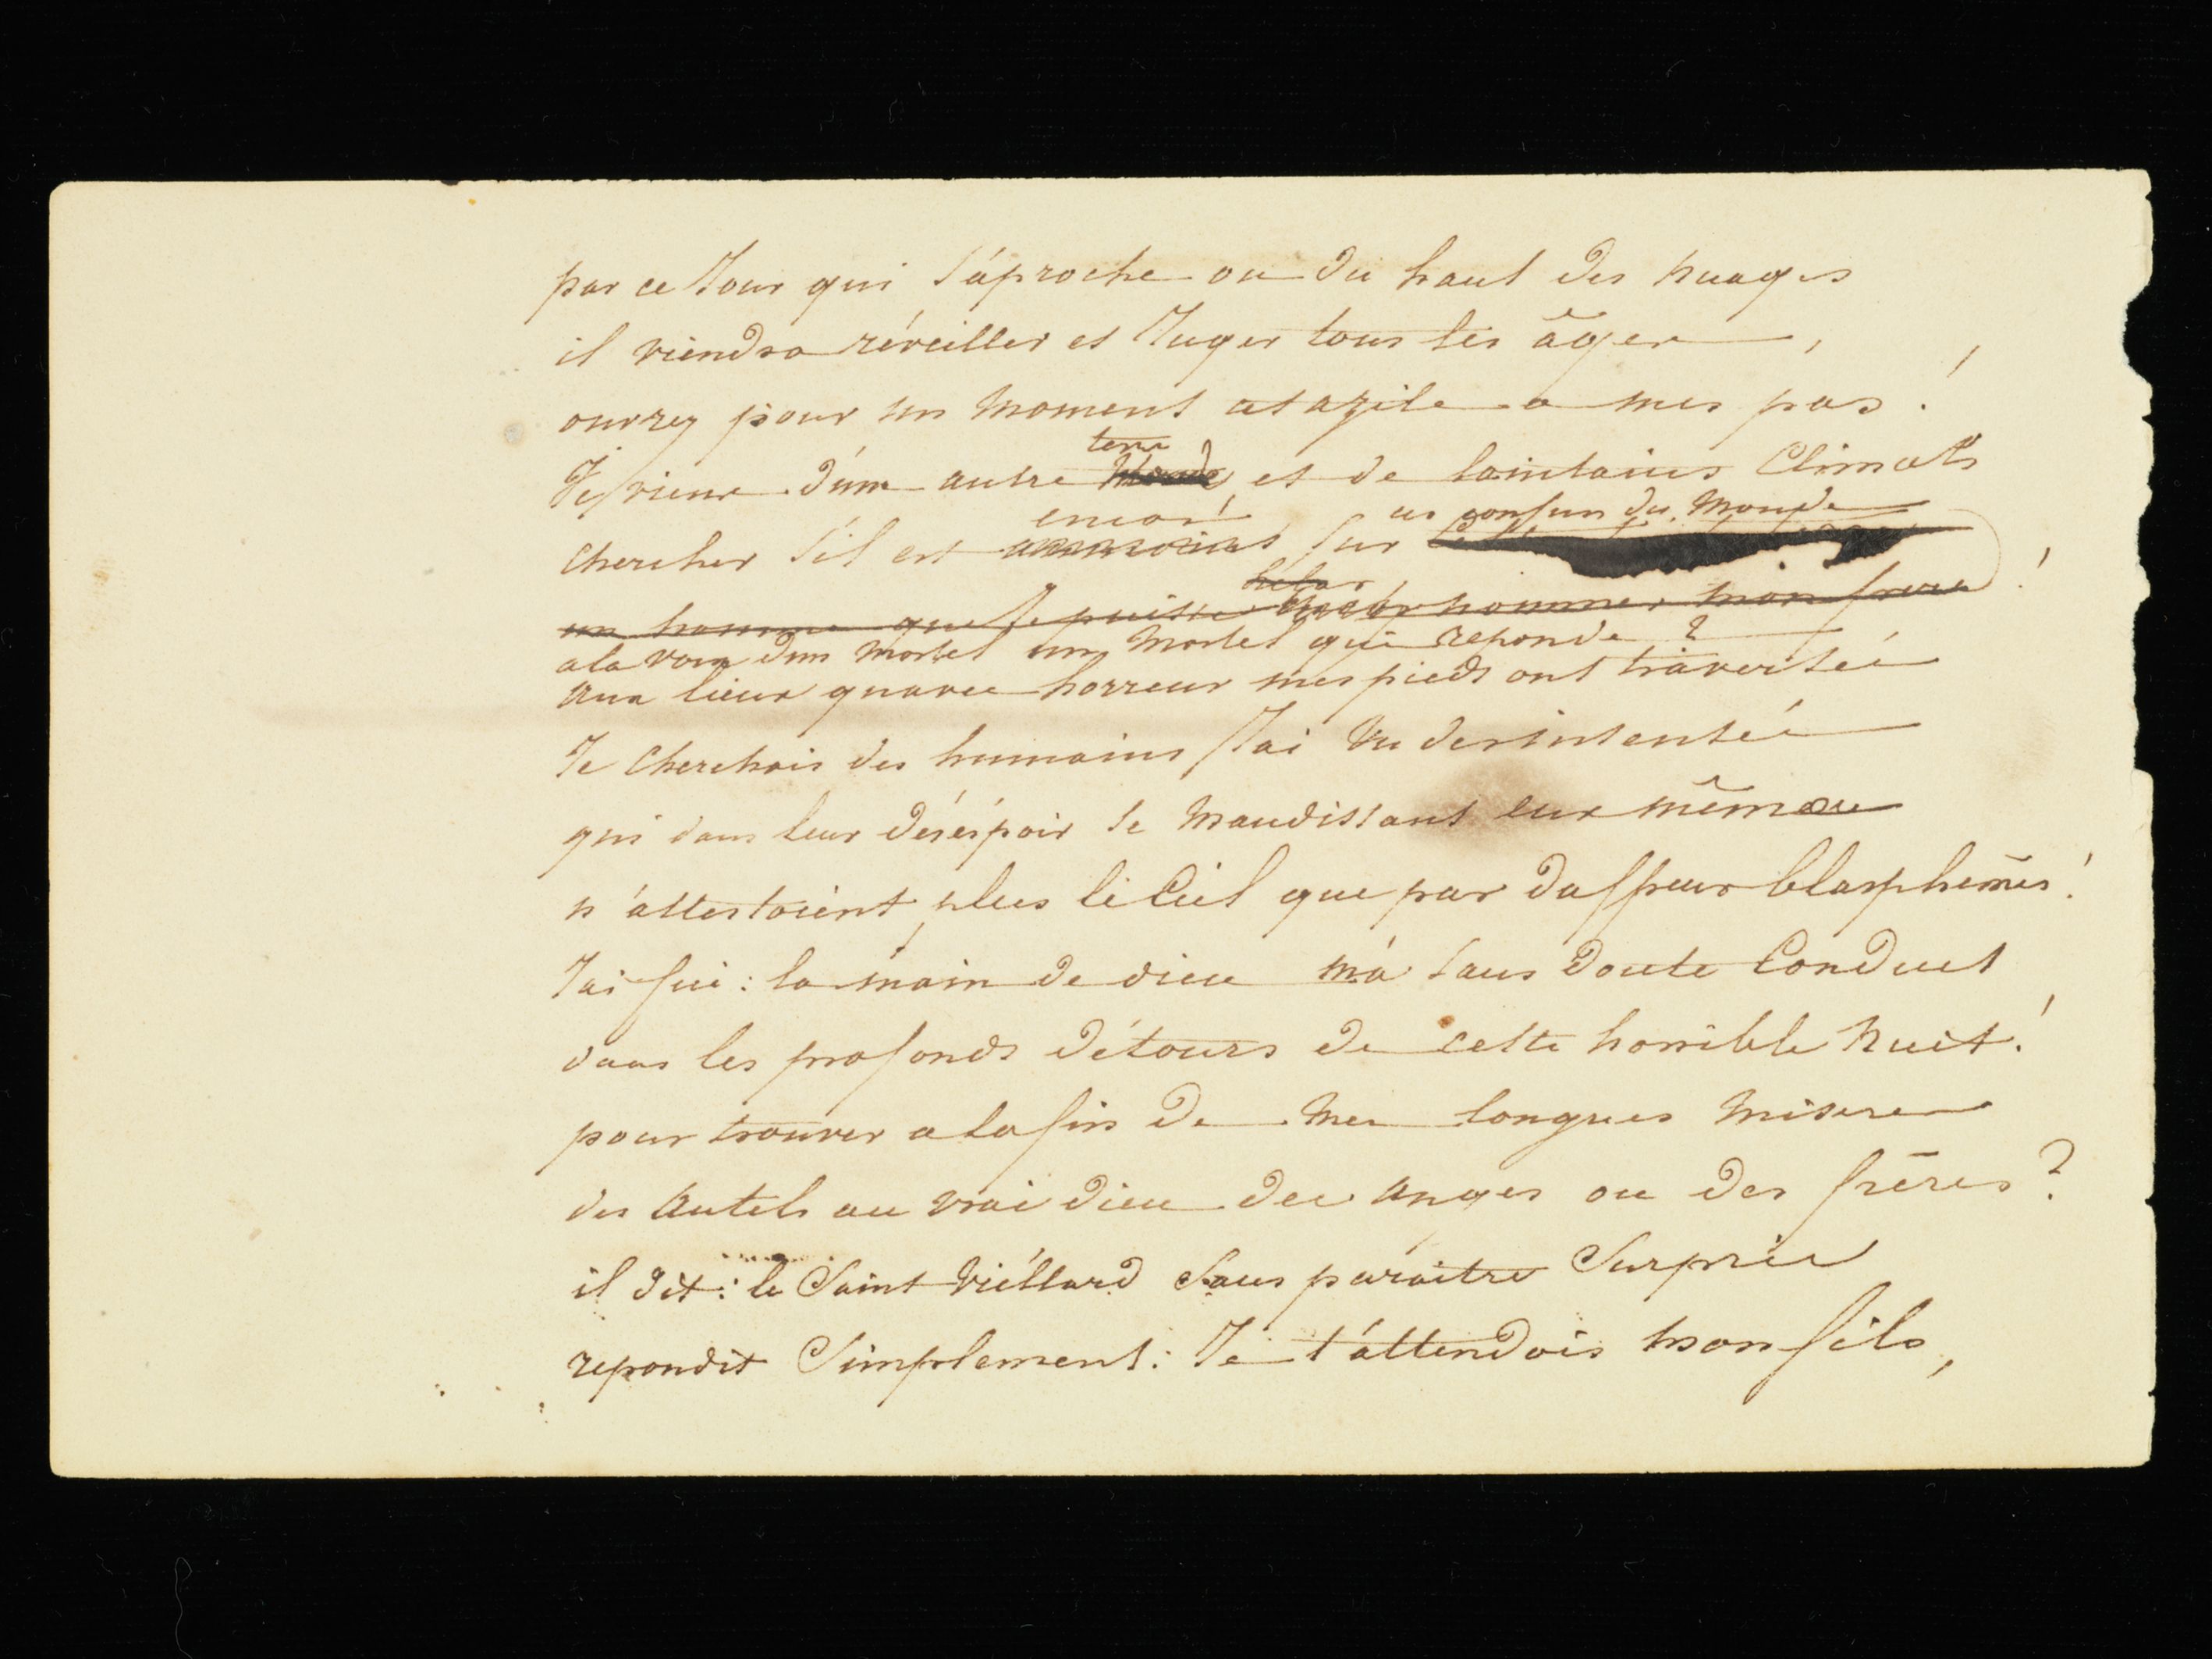 par ce Jour qui s'áproche ou du haut des nuages
il viendra réveiller et Juger tous les âges,
ouvrez pour un moment cet azile a mes pas!
terre
Je viens d'une autre et de lointains Climats
encore ces confins du Monde
Chercher s'il est sur
helas
un homme que Je puisse nommer mon frere!
a la voix d'un mortel un mortel qui reponde?
Aux lieux qu'avec horreur mes pieds ont traversés
Je Cherchois des humains J'ai vu des insensés
qui dans leur désespoir se maudissant eux mêmes
n'attestoient plus le Ciel que par d'affreux blasphêmes!
J'ai fui: la main de dieu m'a sans doute Conduit
dans les profonds détours de cette horrible Nuit!
pour trouver a la fin de mes longues miseres
des Autels au vrai dieu des Anges ou des frêres?
il dit: le Saint viéllard Sans paraitre Surpris
repondit Simplement: Je t'attendois mon fils,